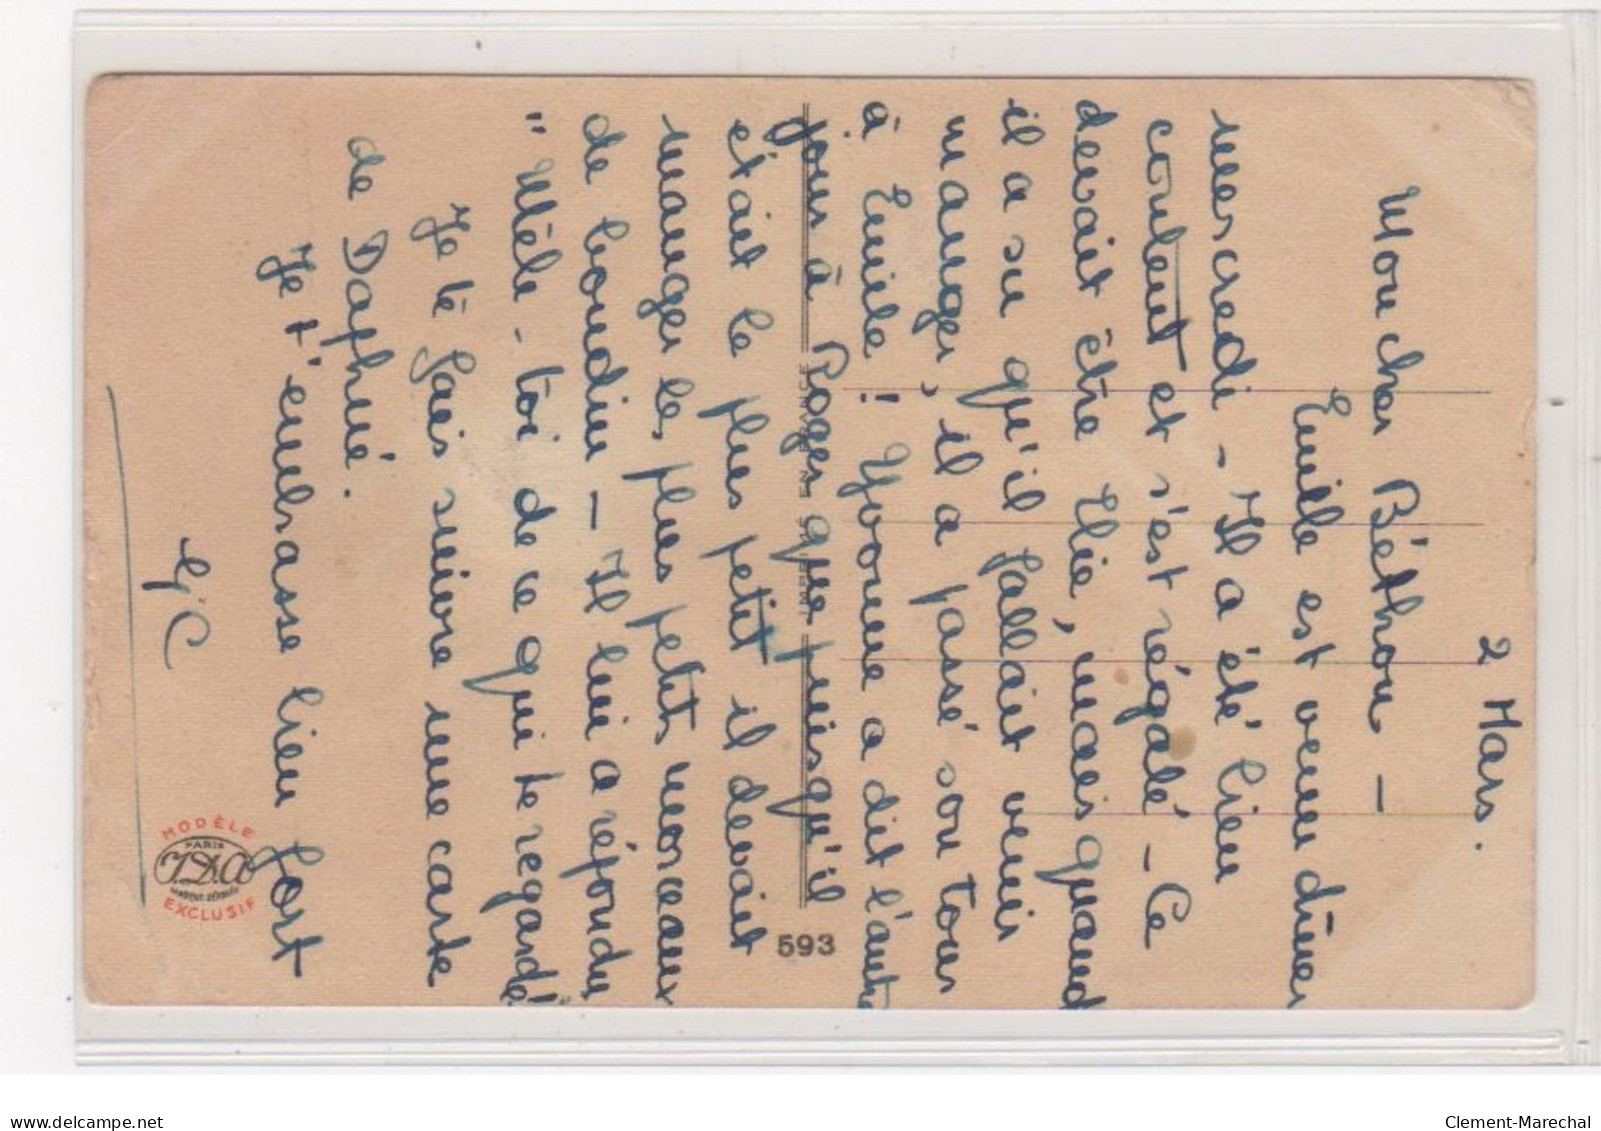 2 Mars.
Mon cher Béthou -
Emile est venu dîner
mercredi - Il a été bien
content et s'est régalé - Ce
devait être Elie, mais quand
il a su qu'il fallait venir
manger, il a passé son tour
à Emile ! Yvonne a dit l'autre
jour à Roger que puisqu'il
était le plus petit il devait
manger les plus petits morceaux
de boudin - Il lui a répondu
" Mêle-toi de ce qui te regarde "
Je te fais suivre une carte
de Daphné.
Je t'embrasse bien fort
G C
IMPRIMÉ EN FRANCE
593
MODÈLE
PARIS
J.D.A
EXCLUSIF
delcampe.net
Clement-Marechal